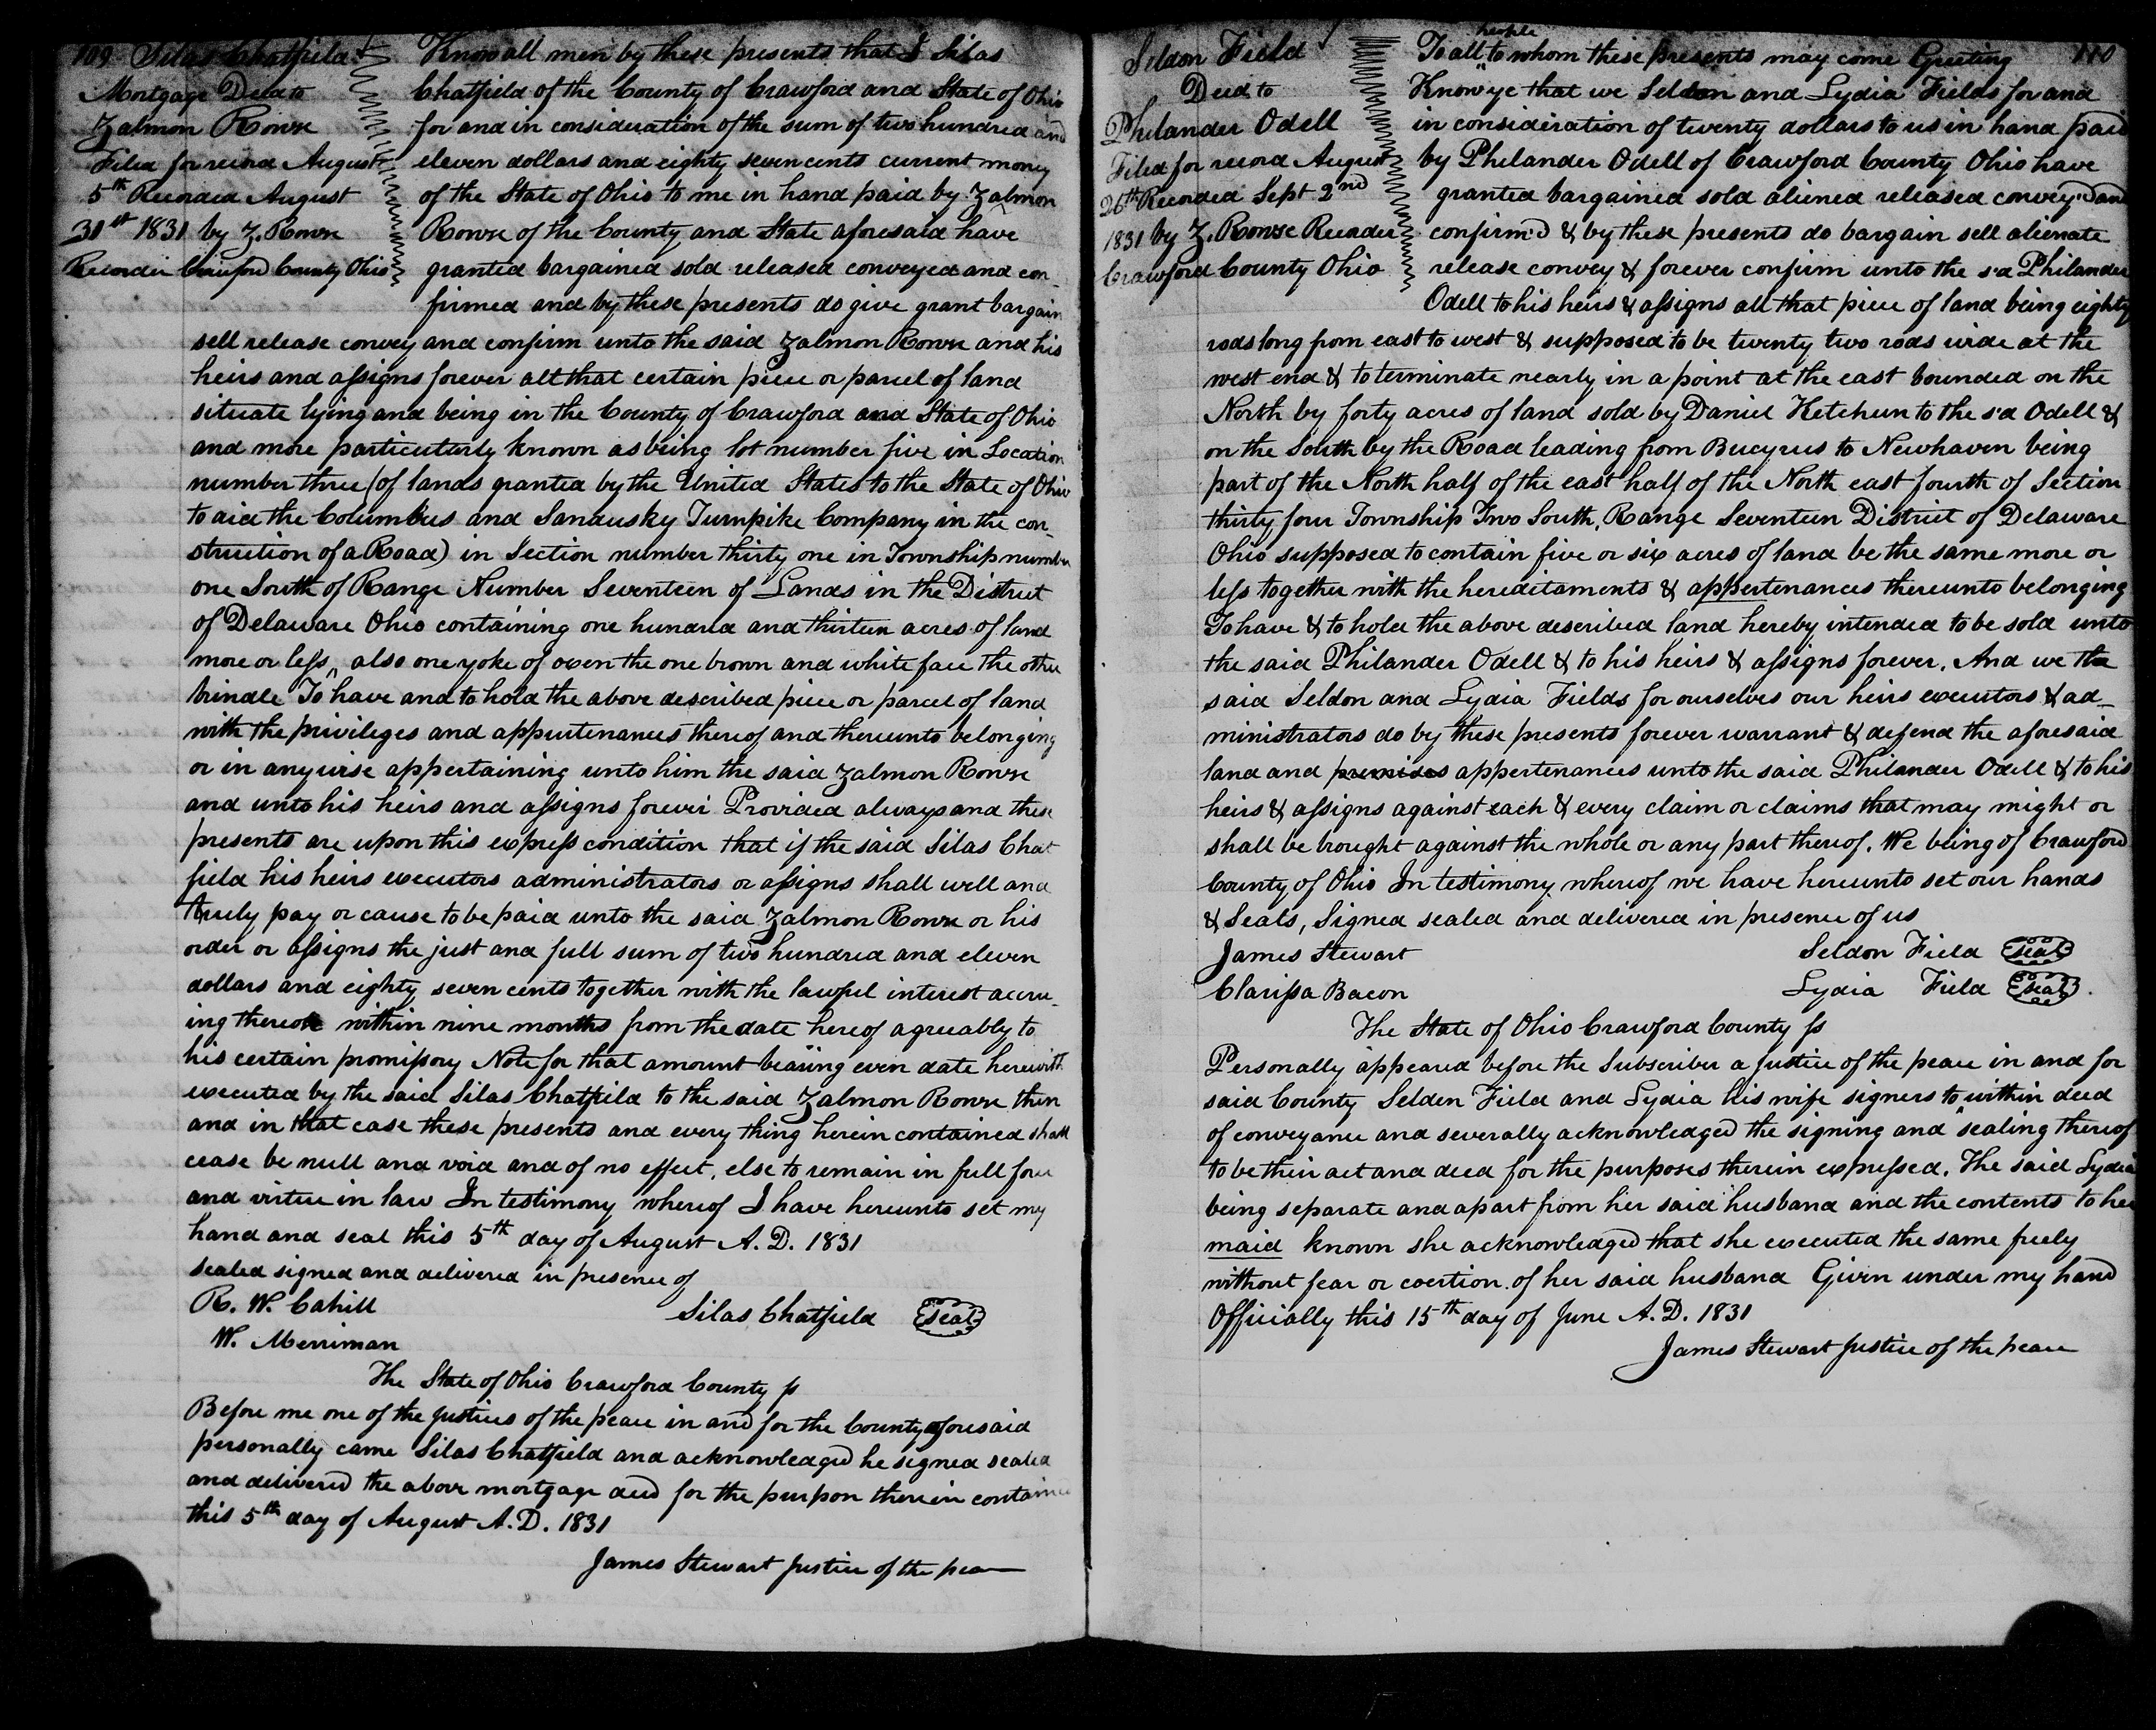 109 Silas Chatfield
Mortgage Deed to
Zalmon Rowse
Filed for record August
5th Recorded August
31st 1831 by Z. Rowse
Recorder Crawford County Ohio
Know all men by these presents that I Silas
Chatfield of the County of Crawford and State of Ohio
for and in consideration of the sum of two hundred and
eleven dollars and eighty seven cents current money
of the State of Ohio to me in hand paid by Zalmon
Rowse of the County and State aforesaid have
granted bargained sold released conveyed and con_
firmed and by these presents do give grant bargain
sell release convey and confirm unto the said Zalmon Rowse and his
heirs and assigns forever all that certain piece or parcel of land
situate lying and being in the County of Crawford and State of Ohio
and more particularly known as being lot number five in Location
number three (of lands granted by the United States to the State of Ohio
to aid the Columbus and Sandusky Turnpike Company in the con_
struction of a Road) in Section number thirty one in Township number
one South of Range Number Seventeen of Lands in the District
of Delaware Ohio containing one hundred and thirteen acres of land
more or less, also one yoke of oxen the one brown and white face the other
brindle To have and to hold the above described piece or parcel of land
with the privileges and appertenances thereof and thereunto belonging
or in anywise appertaining unto him the said Zalmon Rowse
and unto his heirs and assigns forever Provided always and these
presents are upon this express condition that if the said Silas Chat
field his heirs executors administrators or assigns shall well and
truly pay or cause to be paid unto the said Zalmon Rowse or his
order or assigns the just and full sum of two hundred and eleven
dollars and eighty seven cents together with the lawful interest accru_
ing thereon within nine months from the date hereof agreeably to
his certain promissory Note for that amount bearing even date herewith
executed by the said Silas Chatfield to the said Zalmon Rowse then
and in that case these presents and every thing herein contained shall
cease be null and void and of no effect, else to remain in full force
and virtue in law In testimony whereof I have hereunto set my
hand and seal this 5th day of August A.D. 1831
sealed signed and delivered in presence of
R. W. Cahill
Silas Chatfield seal
W. Merriman
The State of Ohio Crawford County ss
Before me one of the Justices of the peace in and for the County aforesaid
personally came Silas Chatfield and acknowledged he signed sealed
and delivered the above mortgage deed for the purpose therein contained
this 5th day of August A.D. 1831
James Stewart Justice of the peace
Seldon Field
Deed to
Philander Odell
Filed for record August
26th Recorded Sept 2nd
1831 by Z. Rowse Recorder
Crawford County Ohio
110
people
To all to whom these presents may come Greeting
Know ye that we Seldon and Lydia Fields for and
in consideration of twenty dollars to us in hand paid
by Philander Odell of Crawford County Ohio have
granted bargained sold aliened released convey'd and
confirm'd & by these presents do bargain sell alienate
release convey & forever confirm unto the s'd Philander
Odell to his heirs & assigns all that piece of land being eighty
rods long from east to west & supposed to be twenty two rods wide at the
west end & to terminate nearly in a point at the east bounded on the
North by forty acres of land sold by Daniel Ketchum to the s'd Odell &
on the South by the Road leading from Bucyrus to Newhaven being
part of the North half of the east half of the North east fourth of Section
thirty four Township Two South, Range Seventeen District of Delaware
Ohio supposed to contain five or six acres of land be the same more or
less together with the hereditaments & appertenances thereunto belonging
To have & to hold the above described land hereby intended to be sold unto
the said Philander Odell & to his heirs & assigns forever. And we the
said Seldon and Lydia Fields for ourselves our heirs executors & ad_
ministrators do by these presents forever warrant & defend the aforesaid
land and premises appertenances unto the said Philander Odell & to his
heirs & assigns against each & every claim or claims that may might or
shall be brought against the whole or any part thereof. We being of Crawford
County of Ohio In testimony whereof we have hereunto set our hands
& Seals, Signed sealed and delivered in presence of us
James Stewart
Seldon Field seal
Clarissa Bacon
Lydia Field seal
The State of Ohio Crawford County ss
Personally appeared before the Subscriber a Justice of the peace in and for
said County Selden Field and Lydia his wife signers to within deed
of conveyance and severally acknowledged the signing and sealing thereof
to be their act and deed for the purposes therein expressed. The said Lydia
being separate and apart from her said husband and the contents to her
maid known she acknowledged that she executed the same freely
without fear or coertion of her said husband Given under my hand
Officially this 15th day of June A.D. 1831
James Stewart Justice of the peace